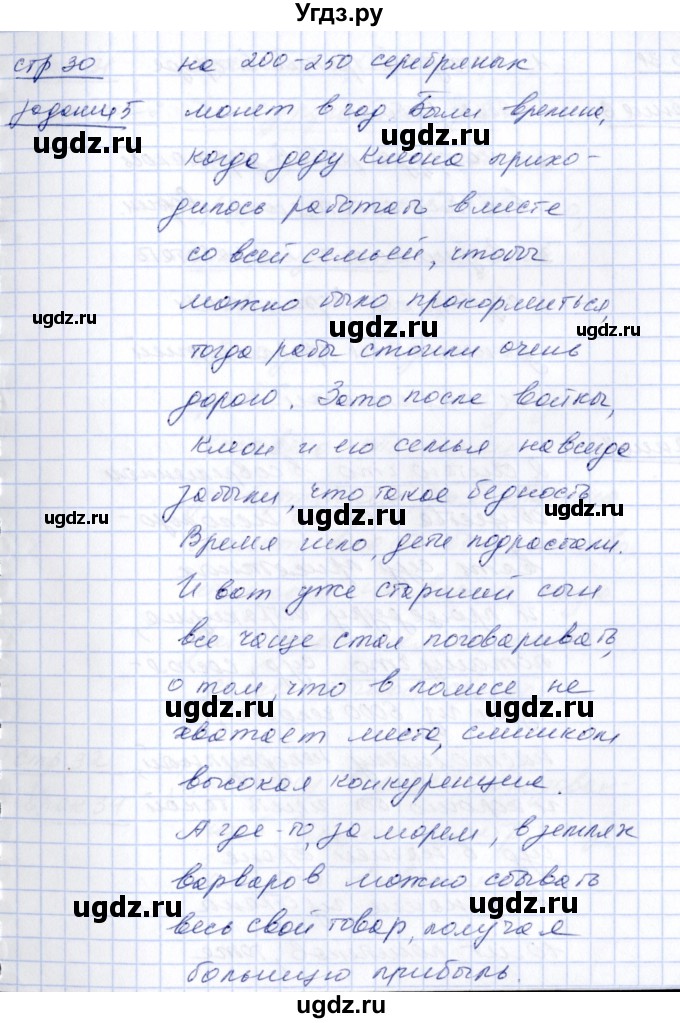 Угдз.ру
стр 30 на 200-250 серебряных
задание 5 монет в год. Были времена,
ugdz.ru ugdz.ru
когда деду Клеона прихо-
дилось работать вместе
ugdz.ru
со всей семьей, чтобы
можно было прокормиться,
ugdz.ru ugdz.ru ugdz.ru
тогда рабы стоили очень
дорого. Зато после войны,
ugdz.ru
Клеон и его семья навсегда
забыли, что такое бедность
ugdz.ru ugdz.ru ugdz.ru
Время шло, дети подрастали.
И вот уже старший сын
ugdz.ru
все чаще стал поговаривать,
о том, что в полисе не
ugdz.ru ugdz.ru
хватает места, слишком
высокая конкуренция.
ugdz.ru
А где-то, за морем, в землях
варваров можно сбывать
ugdz.ru ugdz.ru
весь свой товар, получая
большую прибыль.
ugdz.ru